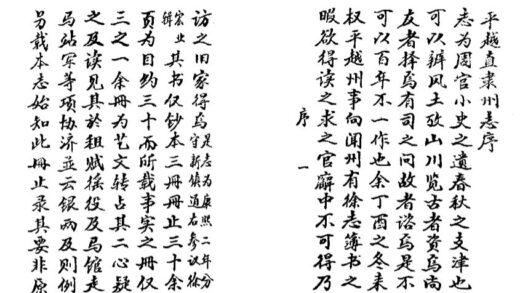 平越直隸州志序
志為周官小史之遺春秋之支津也
可以辨風土攷山川覽古者資焉尚
友者擇焉有司之問故者諮焉是不
可以百年不一作也余丁酉之冬来
权平越州事向闻州有徐志簿書之
暇欲得读之求之官廨中不可得乃
序 一
访之旧家得焉是志为康熙二年分守新镇道右参议徐
宏业辑其书仅钞本三册册止三十余
页为目约三十而所载事实之册仅
三之一余册为艺文转占其二心疑
之及读见其於租赋徭役及马馆走
马站军等项协济並云银两及则例
另载本志始知此册止录其要非原